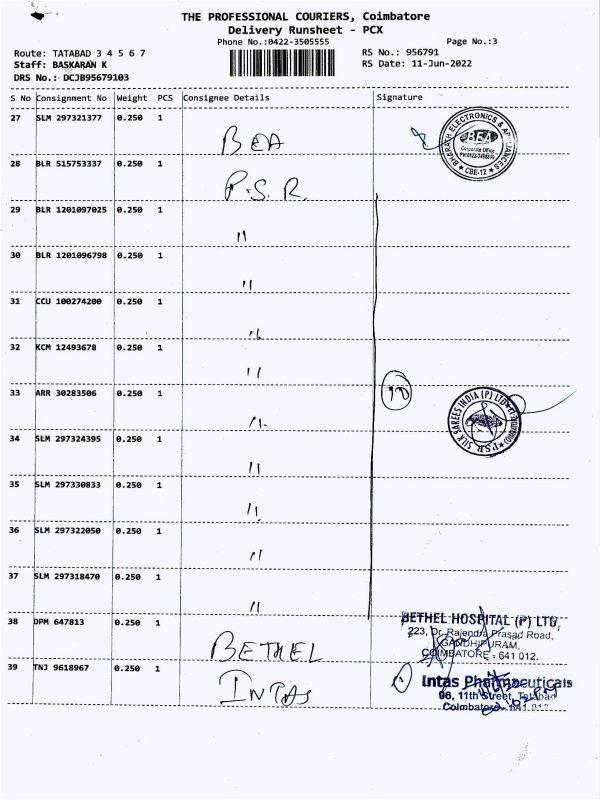 THE PROFESSIONAL COURIERS, Coimbatore
Delivery Runsheet - PCX
Phone No.:0422-3505555
Page No.:3
Route: TATABAD 3 4 5 6 7
RS No.: 956791
Staff: BASKARAN K
RS Date: 11-Jun-2022
DRS No.: DCJB95679103
S No Consignment No Weight PCS Consignee Details Signature
27 SLM 297321377 0.250 1 BEA
BHARATH ELECTRONICS & APPLIANCES
BEA
Corporate Office
CBE-12
28 BLR 515753337 0.250 1 P.S.R.
29 BLR 1201097025 0.250 1 "
30 BLR 1201096798 0.250 1 "
31 CCU 100274200 0.250 1 "
32 KCM 12493678 0.250 1 "
33 ARR 30283506 0.250 1 "
10
PSR SILK SAREES INDIA (P) LTD
34 SLM 297324395 0.250 1 "
35 SLM 297330833 0.250 1 "
36 SLM 297322050 0.250 1 "
37 SLM 297318470 0.250 1 "
38 DPM 647813 0.250 1 BETHEL
BETHEL HOSPITAL (P) LTD,
223, Dr. Rajendra Prasad Road,
GANDHIPURAM,
COIMBATORE - 641 012.
39 TNJ 9618967 0.250 1 INTAS
Intas Pharmaceuticals
98, 11th Street, Tatabad
Coimbatore - 641 012